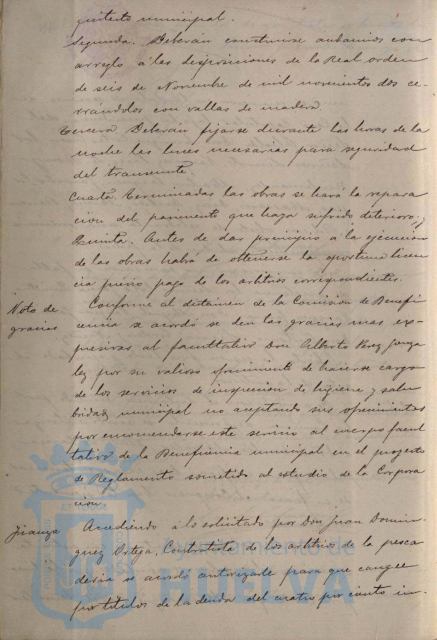 quitecto municipal.
Segunda. Deberán construirse andamios con
arreglo á las disposiciones de la Real orden
de seis de Noviembre de mil novecientos dos ce-
rrándolos con vallas de madera
Tercera Deberán fijarse durante las horas de la
noche las luces necesarias para seguridad
del transeunte
Cuarta Terminadas las obras se hará la repara
cion del pavimento que haya sufrido deterioro; y
Quinta. Antes de dar principio á la ejecucion
de las obras habrá de obtenerse la oportuna licen
cia previo pago de los arbitrios correspondientes.
Voto de
gracias
Conforme al dictamen de la Comision de Benefi
cencia se acordó se den las gracias mas ex-
presivas al facultativo Don Alberto Perez Gonza
lez por su valioso ofrecimiento de hacerse cargo
de los servicios de inspeccion de higiene y salu
bridad municipal no aceptando sus ofrecimientos
por encomendarse este servicio al cuerpo facul
tativo de la Beneficencia municipal en el proyecto
de Reglamento sometido al estudio de la Corpora
cion.
Fianza
Accediendo a lo solicitado por Don Juan Domin-
guez Ortega, Contratista de los arbitrios de la pesca
deria se acordó autorizarle para que cangee
por titulos de la deuda del cuatro por ciento in-
Ayuntamiento de
HUELVA